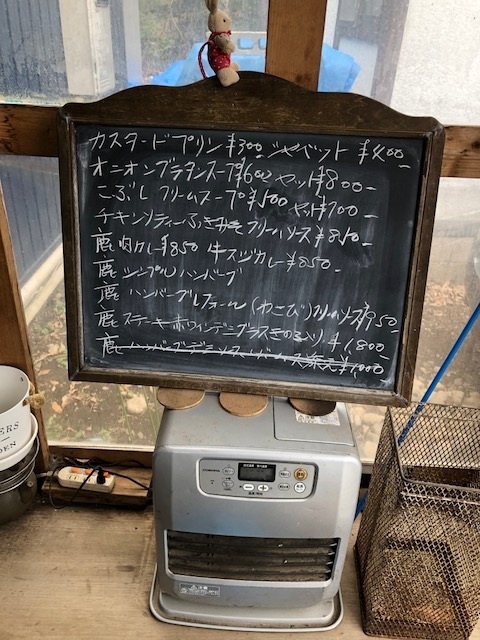 カスタードプリン ¥300 シャーベット ¥400-
オニオングラタンスープ ¥600 セット ¥800-
こぶし クリームスープ ¥500 セット ¥700-
チキンソティーふきみそ クリームソース ¥850-
鹿肉カレー ¥850 牛スジカレー ¥850-
鹿 シンプル ハンバーグ
鹿 ハンバーグ (わさび) クリームソース ¥950
鹿 ステーキ 赤ワインデミグラス きのこ入り ¥1,800
鹿 ハンバーグ ¥1,000
ERS
DEN